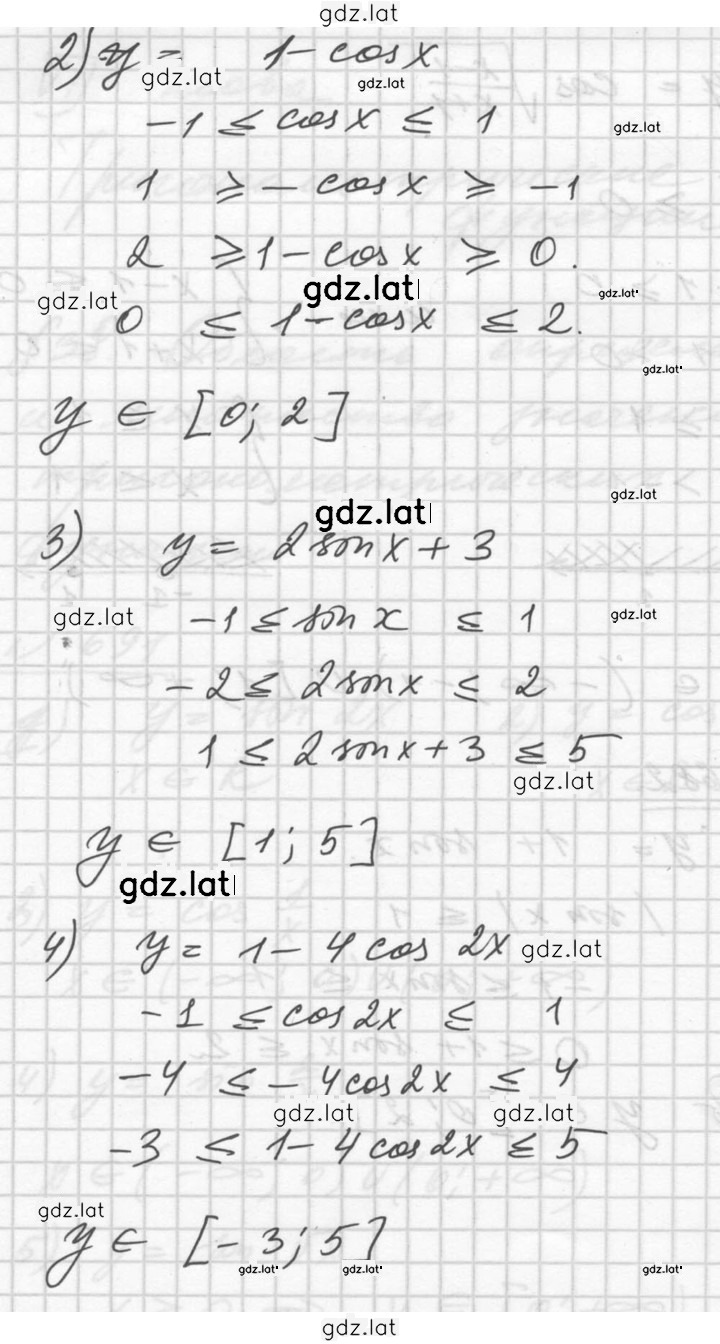 gdz.lat
2) y = 1 - cos x
gdz.lat gdz.lat
-1 ≤ cos x ≤ 1 gdz.lat
1 ≥ - cos x ≥ -1
2 ≥ 1 - cos x ≥ 0.
gdz.lat gdz.lat gdz.lat
0 ≤ 1 - cos x ≤ 2.
gdz.lat
y ∈ [0; 2]
gdz.lat
gdz.lat
3) y = 2 sin x + 3
gdz.lat -1 ≤ sin x ≤ 1 gdz.lat
-2 ≤ 2 sin x ≤ 2
1 ≤ 2 sin x + 3 ≤ 5
gdz.lat
y ∈ [1; 5]
gdz.lat
4) y = 1 - 4 cos 2x gdz.lat
-1 ≤ cos 2x ≤ 1
-4 ≤ - 4 cos 2x ≤ 4
gdz.lat gdz.lat
-3 ≤ 1 - 4 cos 2x ≤ 5
gdz.lat
y ∈ [-3; 5]
gdz.lat gdz.lat gdz.lat
gdz.lat